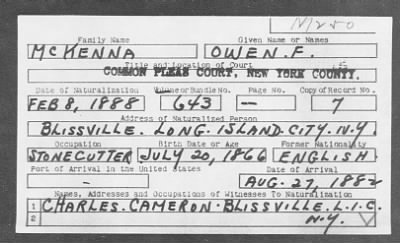 N250
Family Name Given Name or Names
McKENNA OWEN. F.
Title and Location of Court
COMMON PLEAS COURT, NEW YORK COUNTY.
Date of Naturalization Volume or Bundle No. Page No. Copy of Record No.
FEB 8, 1888 643 — 7
Address of Naturalized Person
BLISSVILLE. LONG. ISLAND. CITY. N.Y.
Occupation Birth Date or Age Former Nationality
STONECUTTER JULY 20, 1866 ENGLISH
Port of Arrival in the United States Date of Arrival
- AUG. 27, 1882
Names, Addresses and Occupations of Witnesses To Naturalization
1 CHARLES. CAMERON - BLISSVILLE. L.I.C.
2 N.Y.